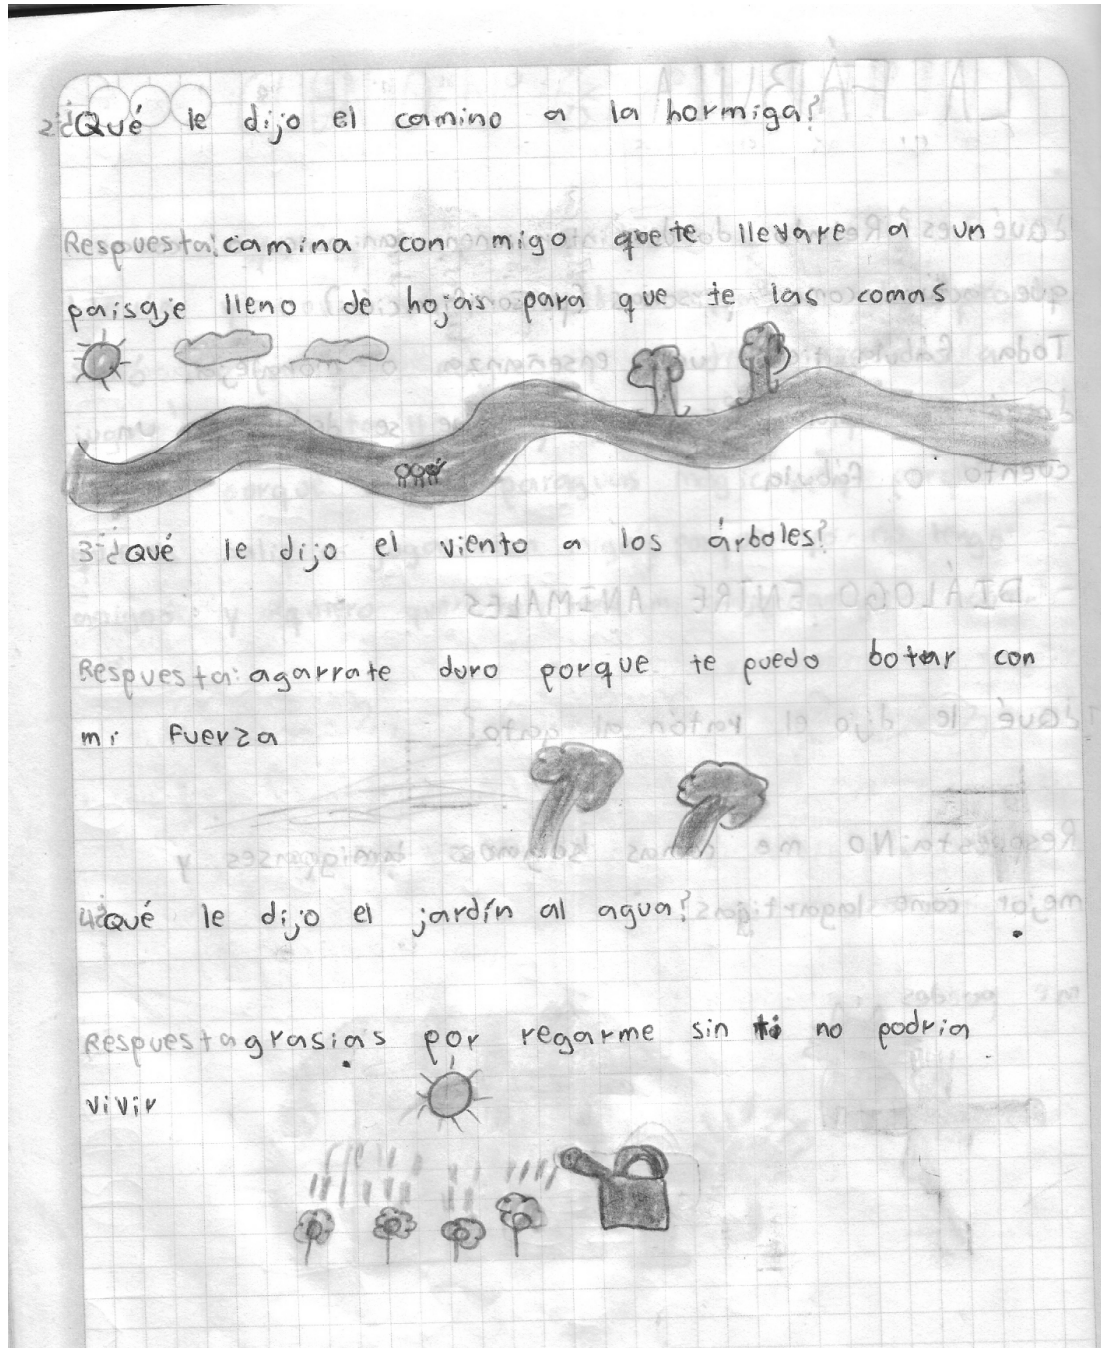 2 ¿Qué le dijo el camino a la hormiga?
Respuesta: camina con migo que te llevare a un
paisaje lleno de hojas para que te las comas
3 ¿Qué le dijo el viento a los árboles?
Respuesta: agarrate duro porque te puedo botar con
mi fuerza
4 ¿Qué le dijo el jardín al agua?
Respuesta grasias por regarme sin ti no podria
vivir